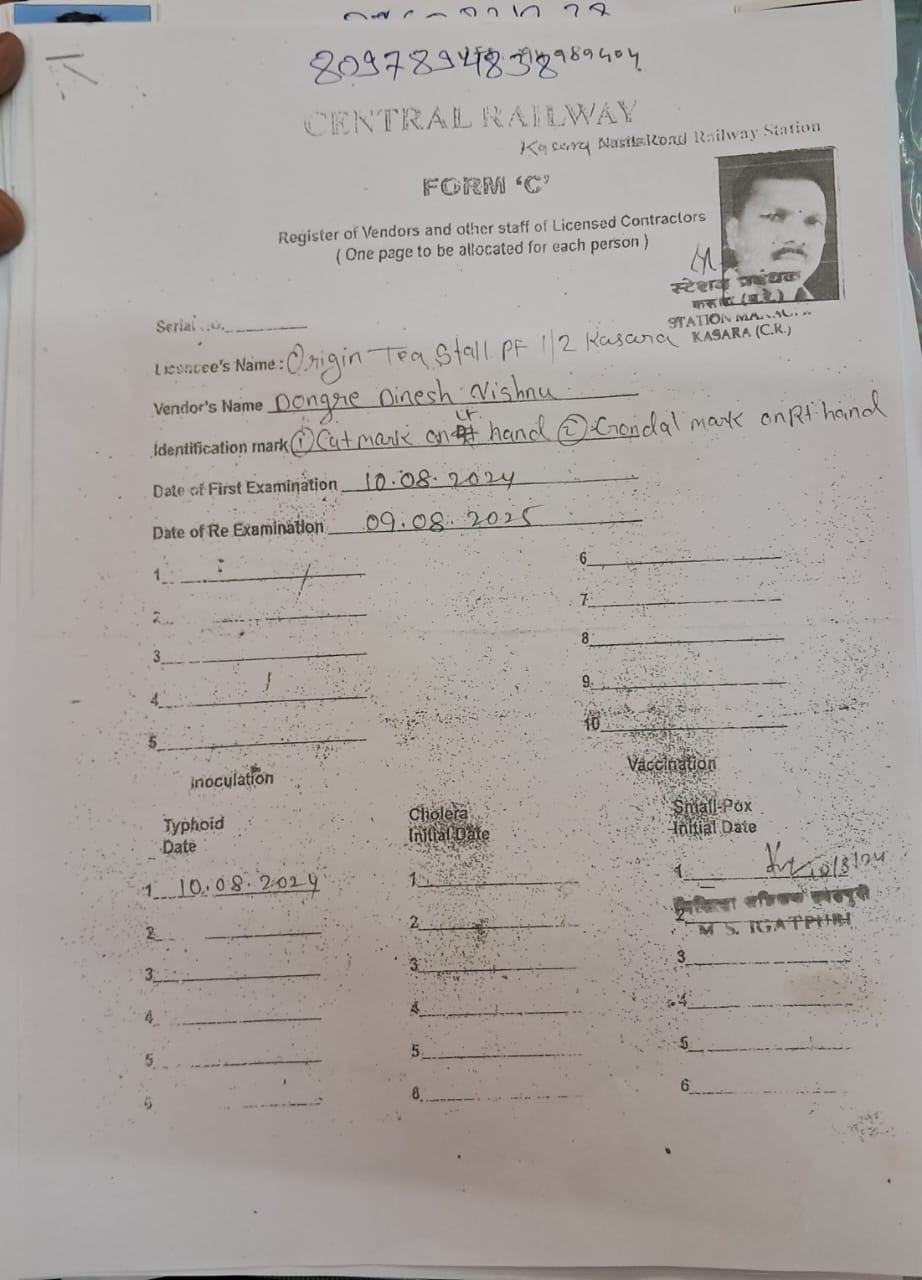 8097894838
CENTRAL RAILWAY
Kasara Nasik Road Railway Station
FORM 'C'
Register of Vendors and other staff of Licensed Contractors
( One page to be allocated for each person )
स्टेशन प्रबंधक
STATION MANAGER
KASARA (C.R.)
Serial No.
Licencee's Name : Origin Tea Stall PF 1/2 Kasara
Vendor's Name Dongre Dinesh Vishnu
Identification mark ① Cut mark on Lt hand ② Gondal mark on Rt hand
Date of First Examination 10.08.2024
Date of Re Examination 09.08.2025
1 6
2 7
3 8
4 9
5 10
Inoculation Vaccination
Typhoid Cholera Small-Pox
Date Initial Date Initial Date
1 10.08.2024 1 1
2 2 2
M S. IGATPURI
3 3 3
4 4 4
5 5 5
6 6 6